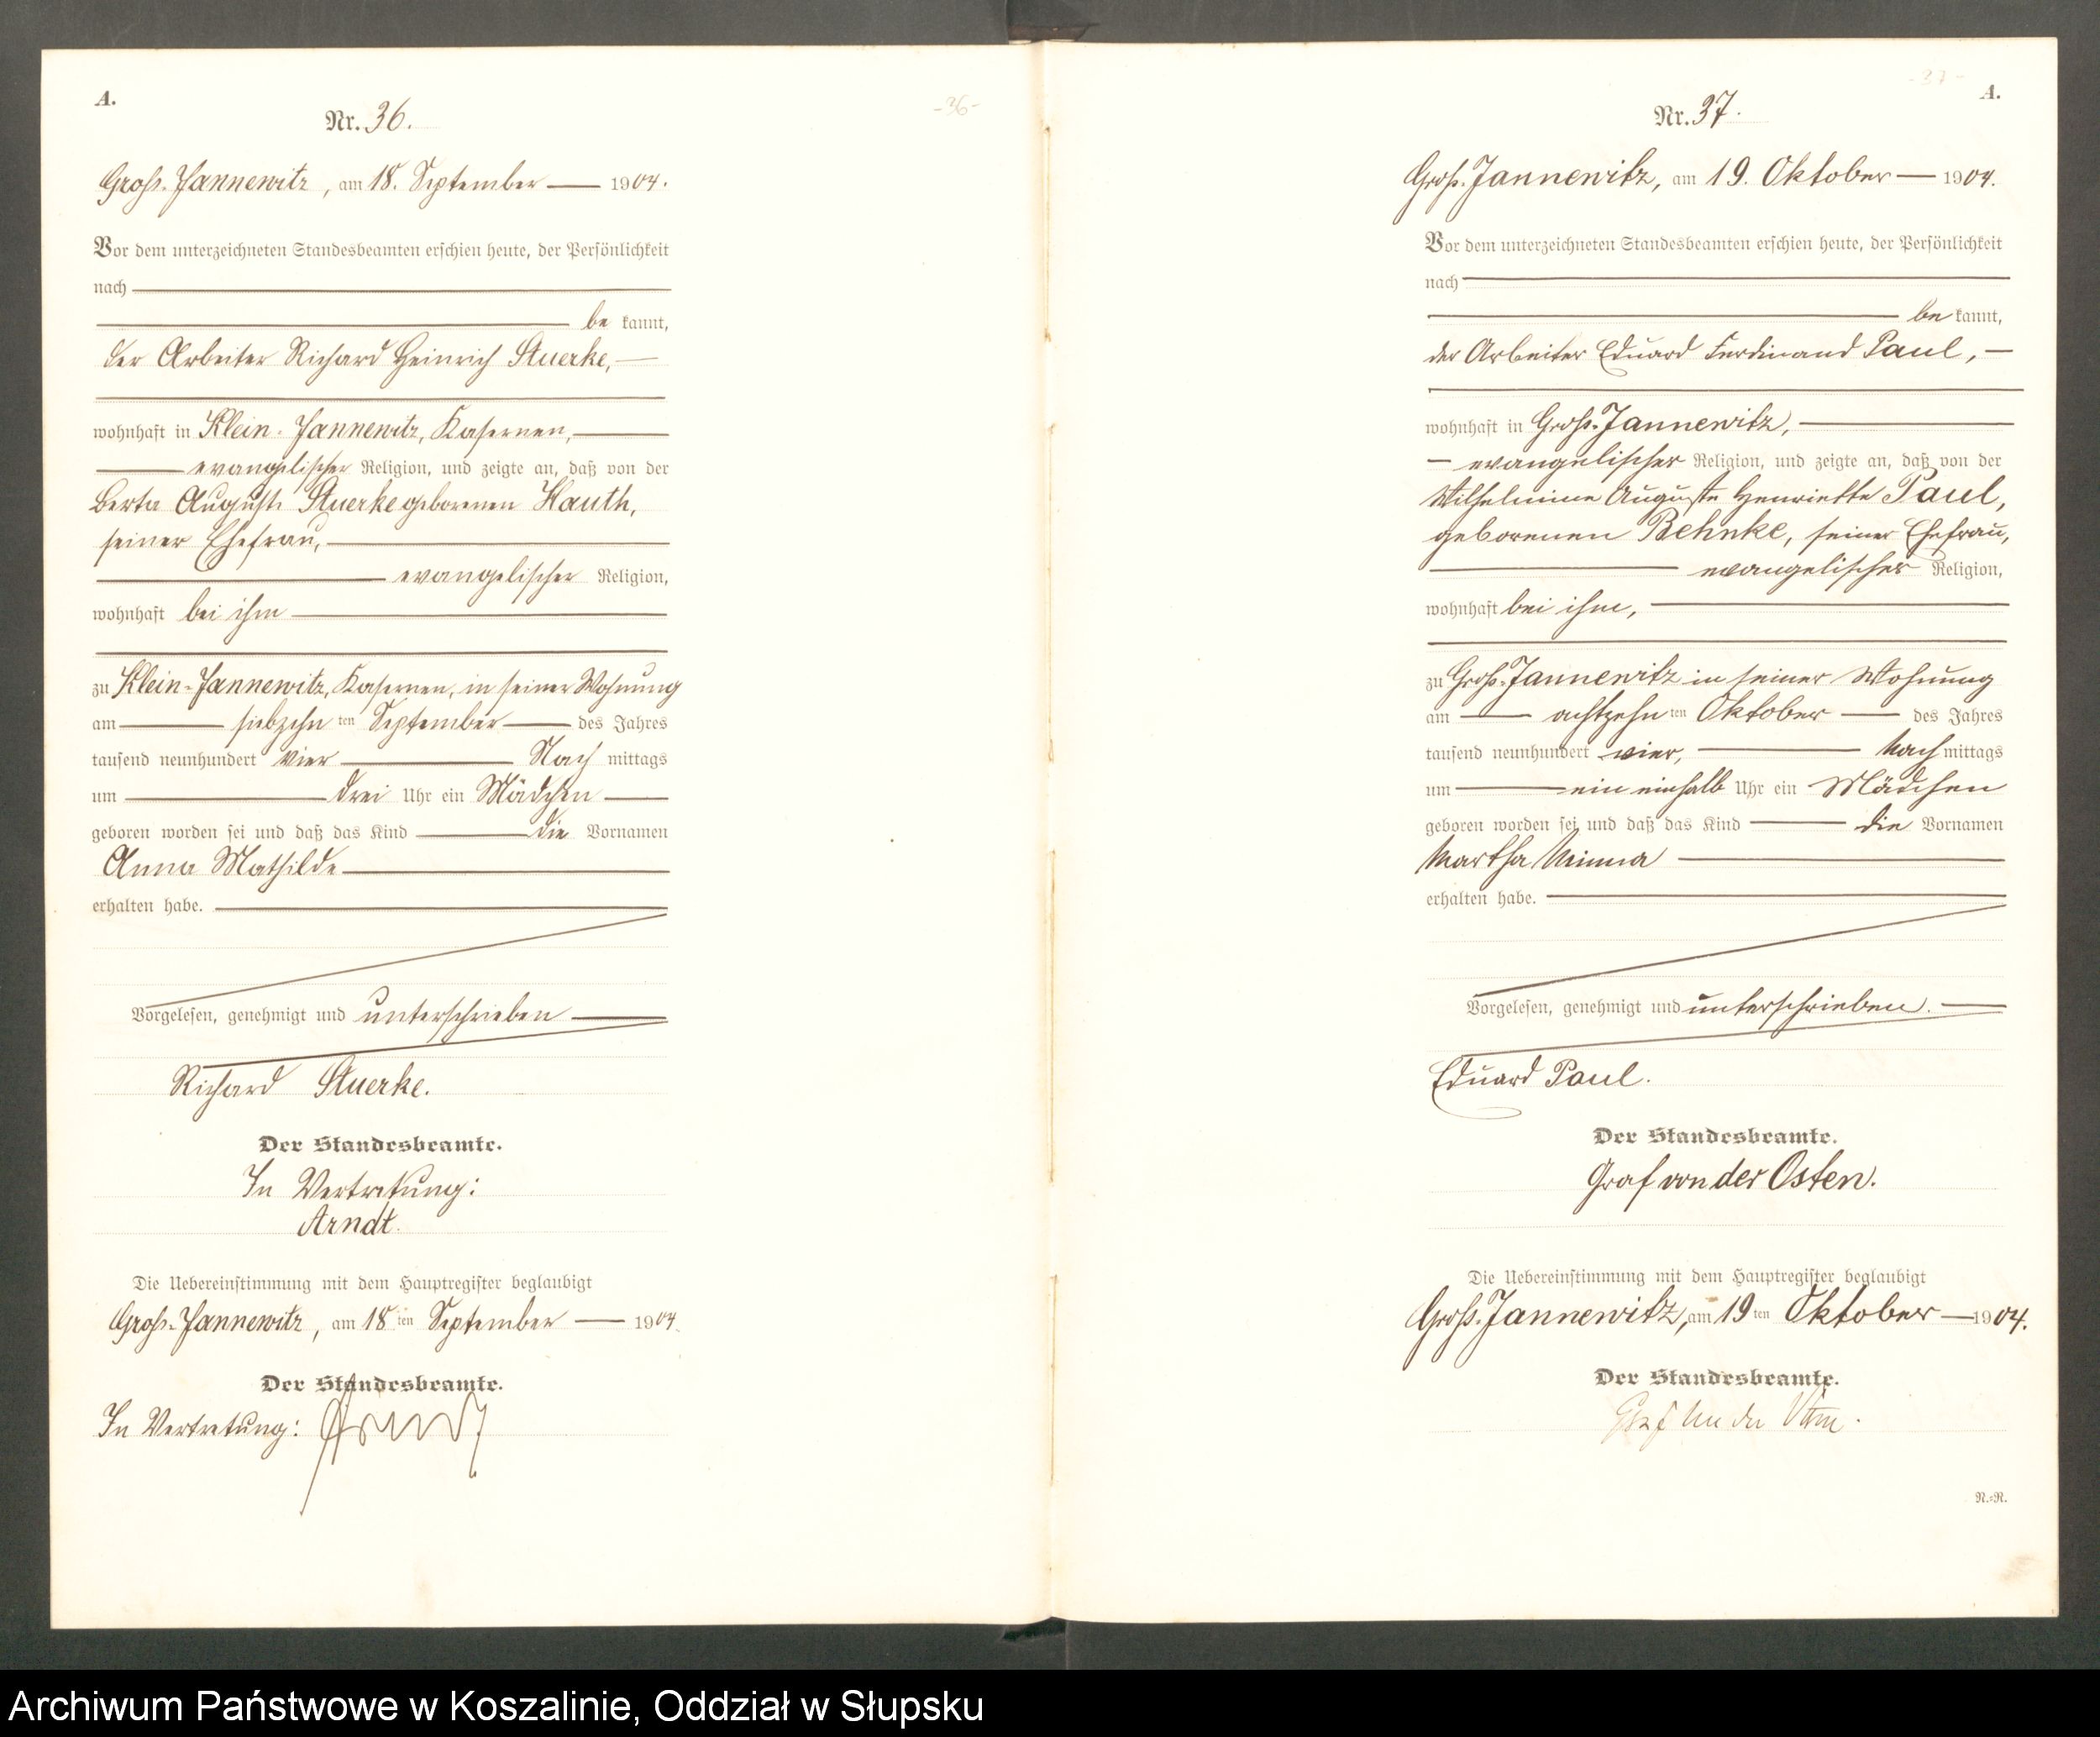 A.
Nr. 36.
-36-
Groß-Jannewitz, am 18. September 1904.
Vor dem unterzeichneten Standesbeamten erschien heute, der Persönlichkeit
nach
be kannt,
der Arbeiter Richard Heinrich Stuerke,
wohnhaft in Klein-Jannewitz, Kasernen,
evangelischer Religion, und zeigte an, daß von der
Berta Auguste Stuerke geborenen Kauth,
seiner Ehefrau,
evangelischer Religion,
wohnhaft bei ihm
zu Klein-Jannewitz, Kasernen, in seiner Wohnung
am siebzehn ten September des Jahres
tausend neunhundert vier Nach mittags
um drei Uhr ein Mädchen
geboren worden sei und daß das Kind die Vornamen
Anna Mathilde
erhalten habe.
Vorgelesen, genehmigt und unterschrieben
Richard Stuerke.
Der Standesbeamte.
In Vertretung:
Arndt.
Die Uebereinstimmung mit dem Hauptregister beglaubigt
Groß-Jannewitz, am 18 ten September 1904.
Der Standesbeamte.
In Vertretung: Arndt
-37-
A.
Nr. 37.
Groß-Jannewitz, am 19. Oktober 1904.
Vor dem unterzeichneten Standesbeamten erschien heute, der Persönlichkeit
nach
be kannt,
der Arbeiter Eduard Ferdinand Paul,
wohnhaft in Groß-Jannewitz,
evangelischer Religion, und zeigte an, daß von der
Wilhelmine Auguste Henriette Paul,
geborenen Behnke, seiner Ehefrau,
evangelischer Religion,
wohnhaft bei ihm,
zu Groß-Jannewitz in seiner Wohnung
am achtzehn ten Oktober des Jahres
tausend neunhundert vier, Nach mittags
um ein einhalb Uhr ein Mädchen
geboren worden sei und daß das Kind die Vornamen
Martha Minna
erhalten habe.
Vorgelesen, genehmigt und unterschrieben.
Eduard Paul.
Der Standesbeamte.
Graf von der Osten.
Die Uebereinstimmung mit dem Hauptregister beglaubigt
Groß-Jannewitz, am 19 ten Oktober 1904.
Der Standesbeamte.
Graf von der Osten.
N.=R.
Archiwum Państwowe w Koszalinie, Oddział w Słupsku